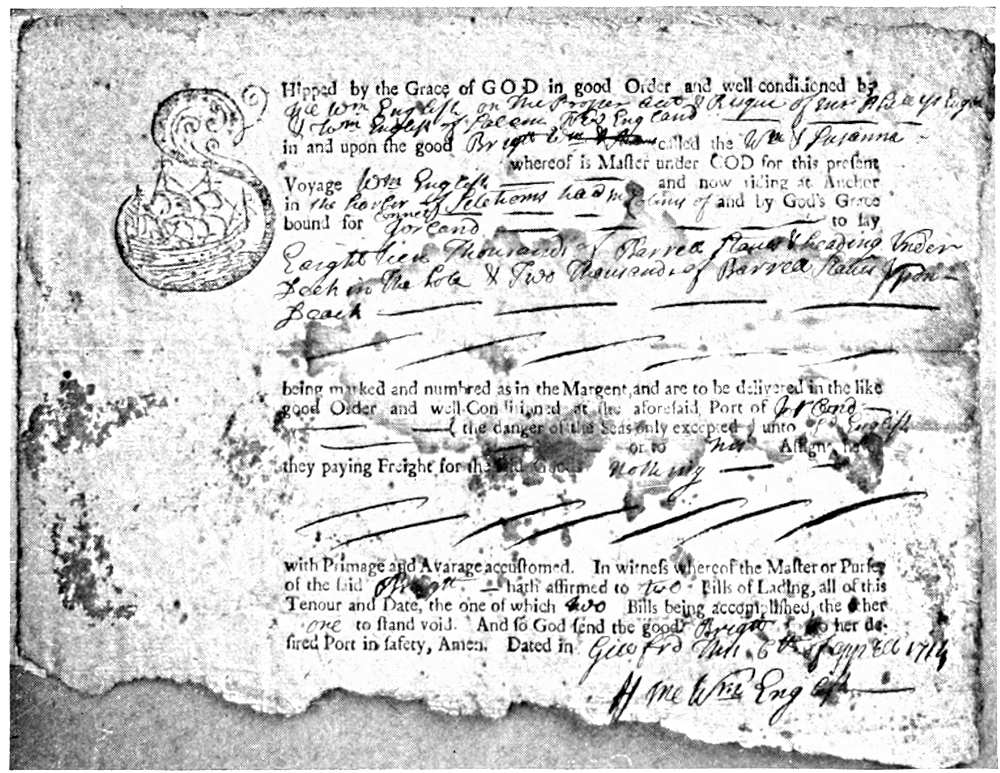 SHipped by the Grace of GOD in good Order and well conditioned by
Me Wm English on The Proper acct & Risque of
& Wm English of Salem New England
in and upon the good Brigtt called the Wm & Susanna
whereof is Master under GOD for this present
Voyage Wm English and now riding at Anchor
in the of and by God's Grace
bound for to say
Eaighttien Thousands of Barrell staves & heading Under
Deck in The hole & Two Thousands of Barrell staves Uppon
Deack
being marked and numbred as in the Margent, and are to be delivered in the like
good Order and well Conditioned at the aforesaid Port of
( the danger of the Seas only excepted ) unto Sd English
or to his Assigns, he or
they paying Freight for the said Goods nothing
with Primage and Avarage accustomed. In witness whereof the Master or Purser
of the said Brigtt hath affirmed to two Bills of Lading, all of this
Tenour and Date, the one of which two Bills being accomplished, the other
one to stand void. And so God send the good Brigtt to her de-
sired Port in safety, Amen. Dated in 6th 1714
Me Wm English